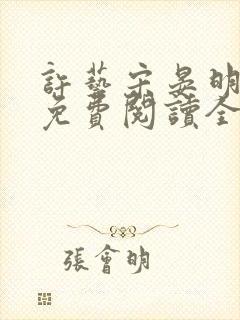 許藝宋晏明
免費閱讀全
張會明